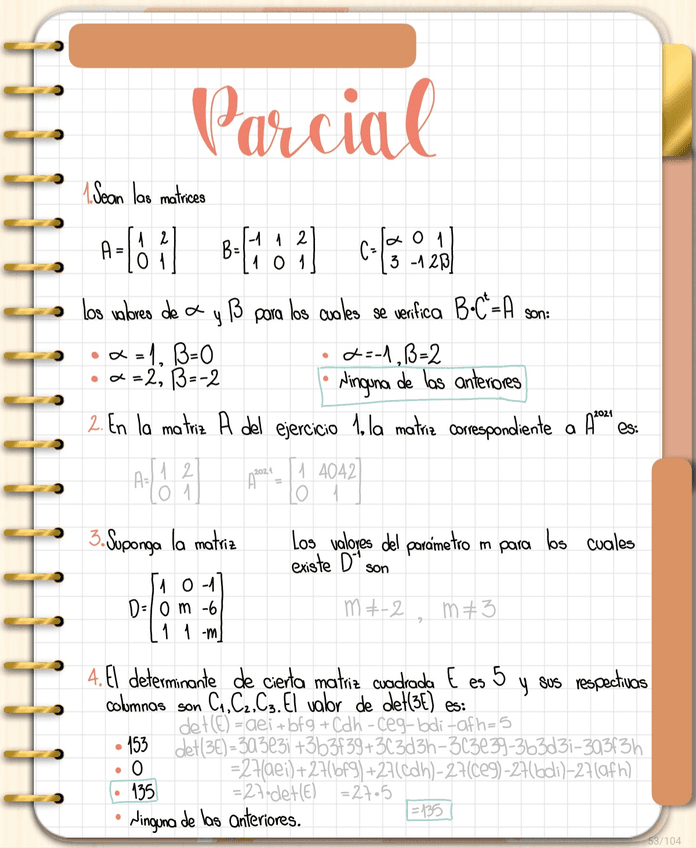 Parcial
1. Sean las matrices
A=[1 2 B=[-1 1 2 C=[α 0 1
0 1] 1 0 1] 3 -1 2β]
los valores de α y β para los cuales se verifica B·Cᵗ=A son:
• α=1, β=0 • α=-1, β=2
• α=2, β=-2 • Ninguna de las anteriores
2. En la matriz A del ejercicio 1, la matriz correspondiente a A²⁰²¹ es:
A=[1 2 A²⁰²¹=[1 4042
0 1] 0 1]
3. Suponga la matriz Los valores del parámetro m para los cuales
existe D⁻¹ son
D=[1 0 -1
0 m -6
1 1 -m]
m≠-2 , m≠3
4. El determinante de cierta matriz cuadrada E es 5 y sus respectivas
columnas son C₁,C₂,C₃. El valor de det(3E) es:
det(E)=aei+bfg+cdh-ceg-bdi-afh=5
• 153 det(3E)=3a3e3i+3b3f3g+3c3d3h-3c3e3g-3b3d3i-3a3f3h
• 0 =27(aei)+27(bfg)+27(cdh)-27(ceg)-27(bdi)-27(afh)
• 135 =27·det(E) =27·5
=135
• Ninguna de las anteriores.
53/104